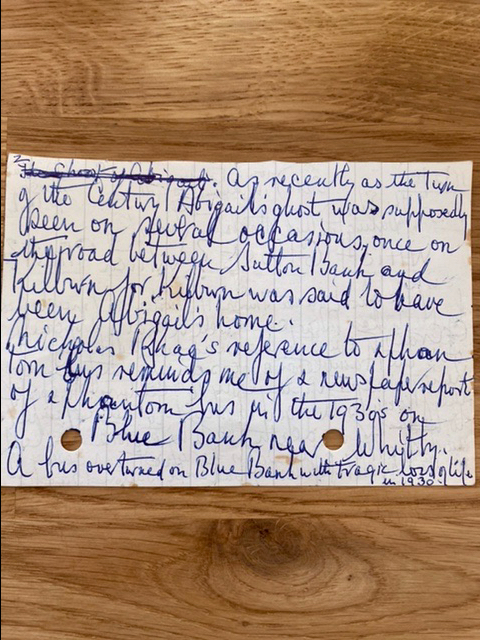 2 The Ghost of Abigail. As recently as the turn
of the Century Abigail's ghost was supposedly
seen on several occasions, once on
the road between Sutton Bank and
Kilburn for Kilburn was said to have
been Abigail's home.
Nicholas Rhea's reference to a phan
tom bus reminds me of a newspaper report
of a phantom bus in the 1930s on
Blue Bank near Whitby.
A bus overturned on Blue Bank with tragic loss of life
in 1930.